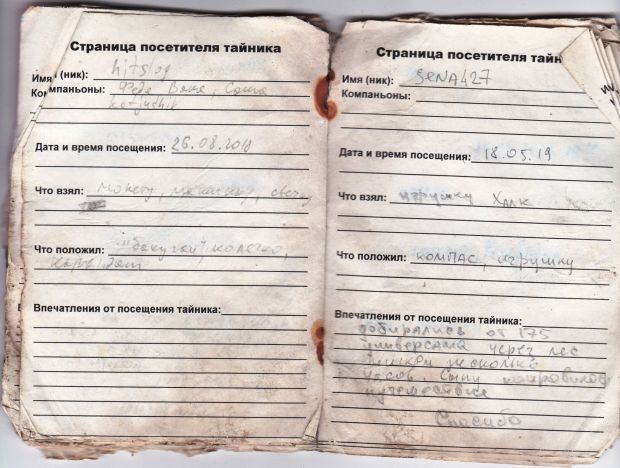 Страница посетителя тайника
Имя (ник): hitslog
Компаньоны: Федя Ваня, Саша
Дата и время посещения: 26.08.2018
Что взял: монету, машинку, свечу
Что положил: "бакуган" колечко,
Впечатления от посещения тайника:
Страница посетителя тайн
Имя (ник): SENA427
Компаньоны:
Дата и время посещения: 18.05.19
Что взял: игрушку Халк
Что положил: компас, игрушку
Впечатления от посещения тайника:
добирались от 175
универсама через лес
пешком несколько
часов. Сыну понравилось
путешествие
Спасибо